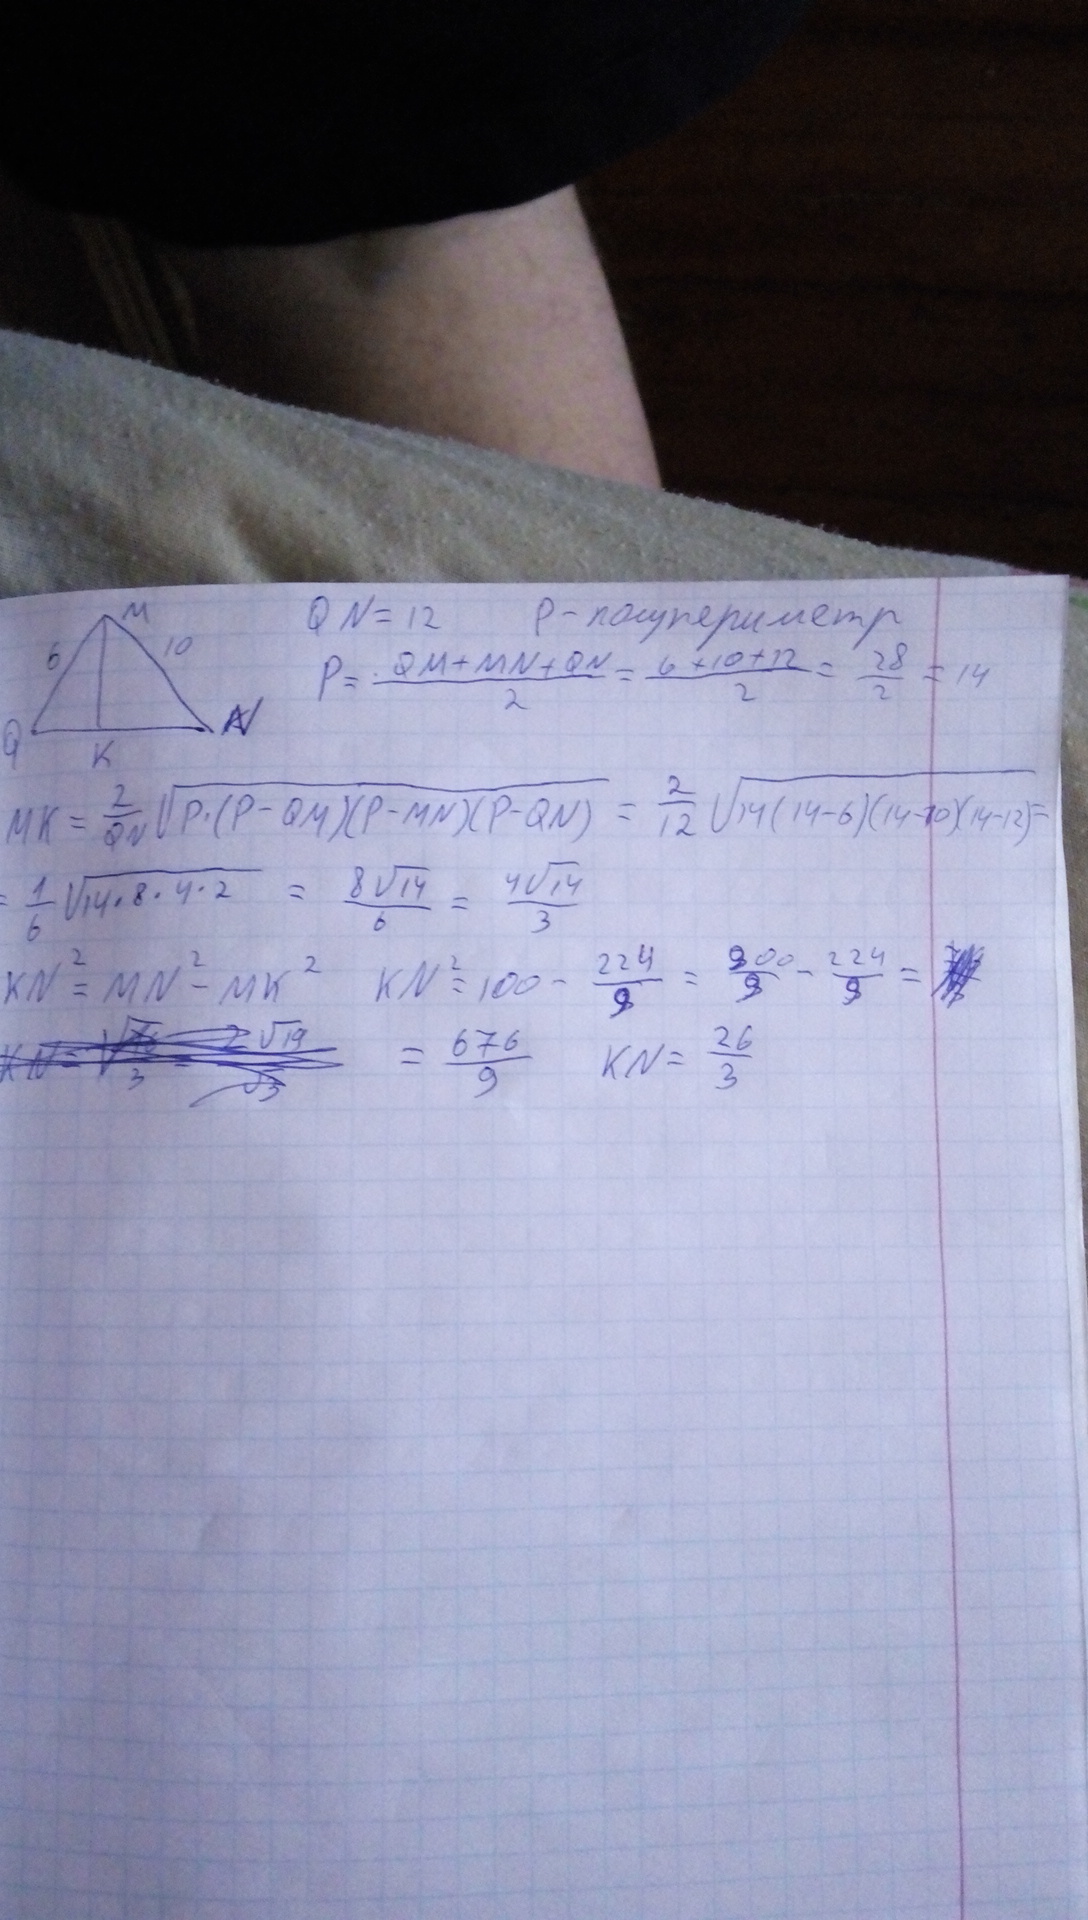 M
6
10
Q
K
N
QN=12 P-полупериметр
P= (QM+MN+QN)/2 = (6+10+12)/2 = 28/2 = 14
MK = 2/QN √P·(P-QM)(P-MN)(P-QN) = 2/12 √14(14-6)(14-10)(14-12) =
= 1/6 √14·8·4·2 = 8√14/6 = 4√14/3
KN² = MN² - MK² KN² = 100 - 224/9 = 900/9 - 224/9 =
= 676/9 KN = 26/3